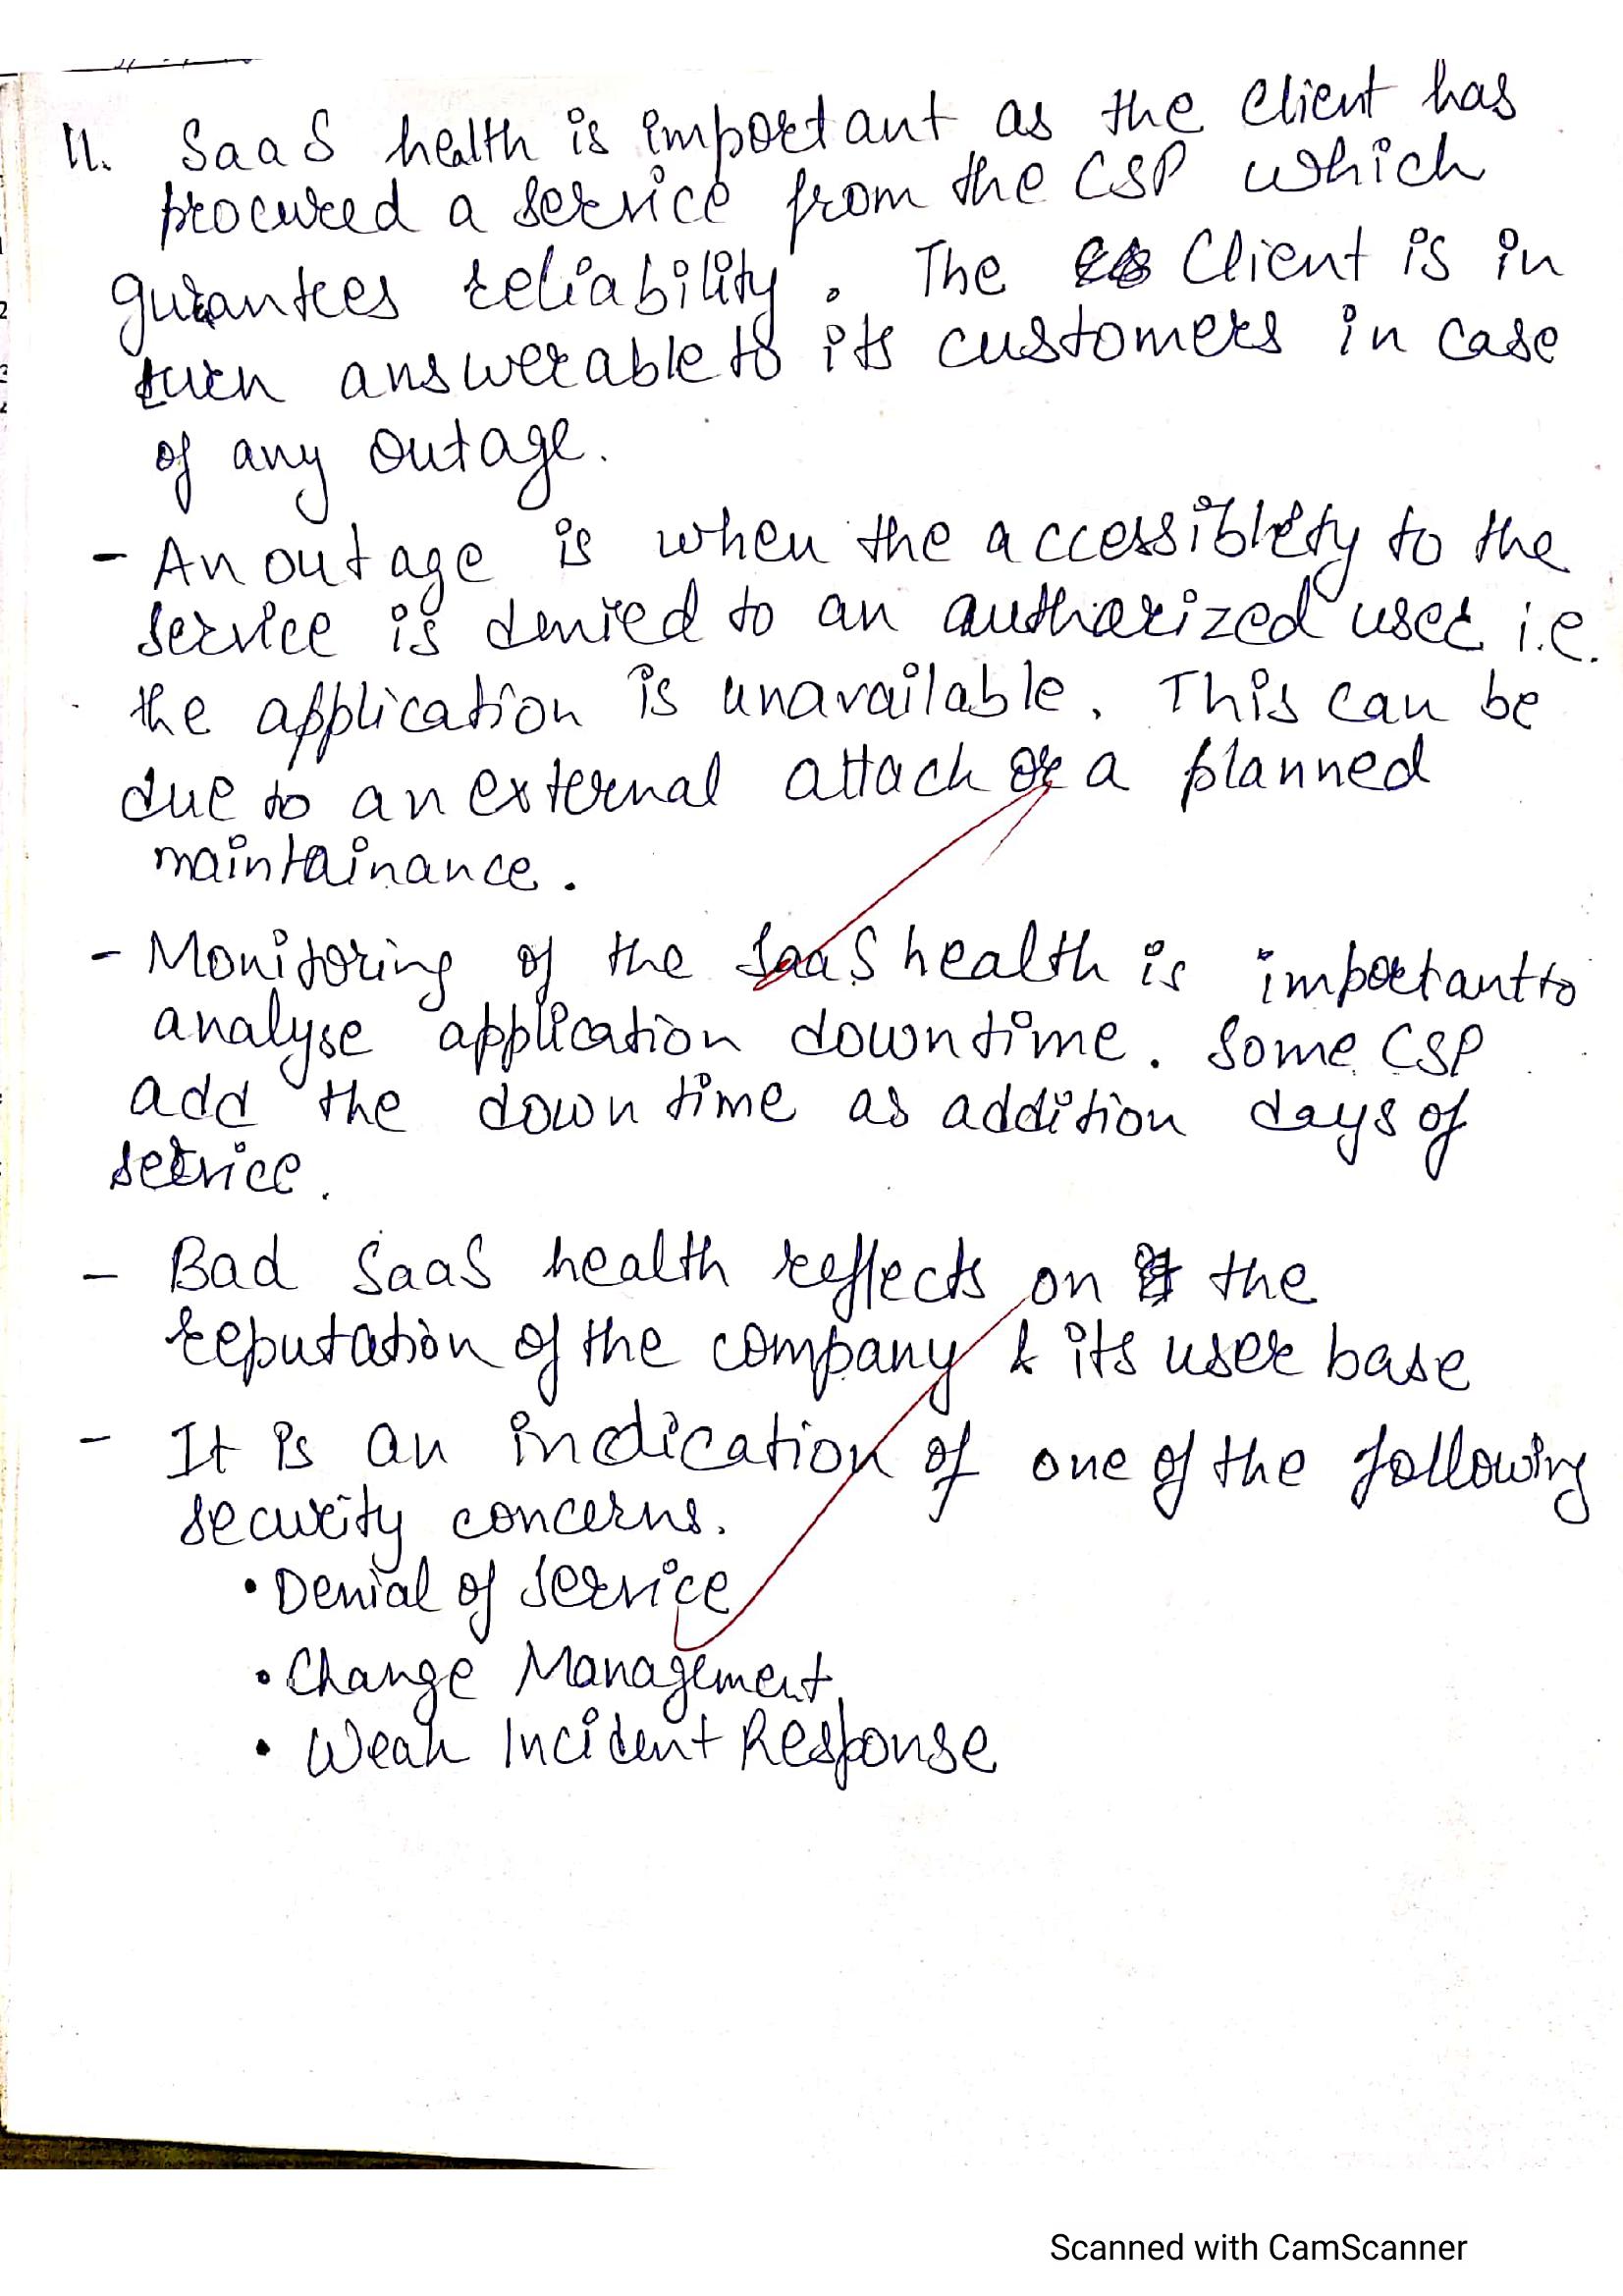 11. SaaS health is important as the Client has
procured a service from the CSP which
gurantees reliability. The Client is in
turn answerable to its customers in case
of any outage.
- An outage is when the accessiblity to the
service is denied to an autharized user i.e.
the application is unavailable. This can be
due to an external attack or a planned
maintainance.
- Monitoring of the SaaS health is important to
analyse application downtime. Some CSP
add the downtime as addition days of
service.
- Bad SaaS health reflects on the
reputation of the company & its user base
- It is an indication of one of the following
security concerns.
• Denial of Service
• Change Management
• Weak Incident Response
Scanned with CamScanner